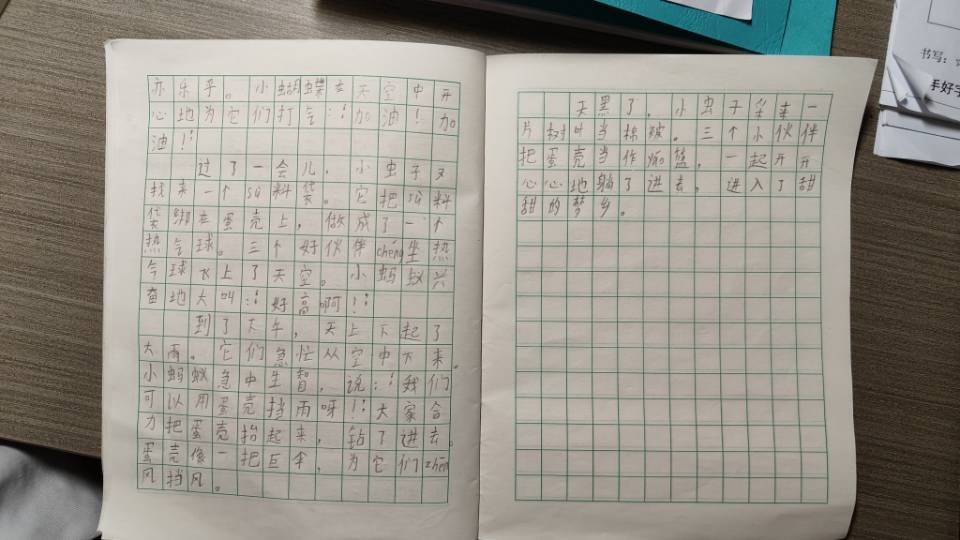 亦乐乎。小蝴蝶在天空中开
心地为它们打气:“加油！加
油！”
过了一会儿，小虫子又
找来一个sù料袋。它把sù料
袋绑在蛋壳上，做成了一个
热气球。三个好伙伴chéng坐热
气球飞上了天空。小蚂蚁兴
奋地大叫:“好高啊！”
到了大午，天上下起了
大雨。它们急忙从空中下来。
小蚂蚁急中生智，说:“我们
可以用蛋壳挡雨呀！”大家合
力把蛋壳抬起来，钻了进去。
蛋壳像一把巨伞，为它们zhē
风挡风。
天黑了，小虫子采来一
片树叶当棉被。三个小伙伴
把蛋壳当作摇篮，一起开开
心心地躺了进去，进入了甜
甜的梦乡。
书写：
手好字